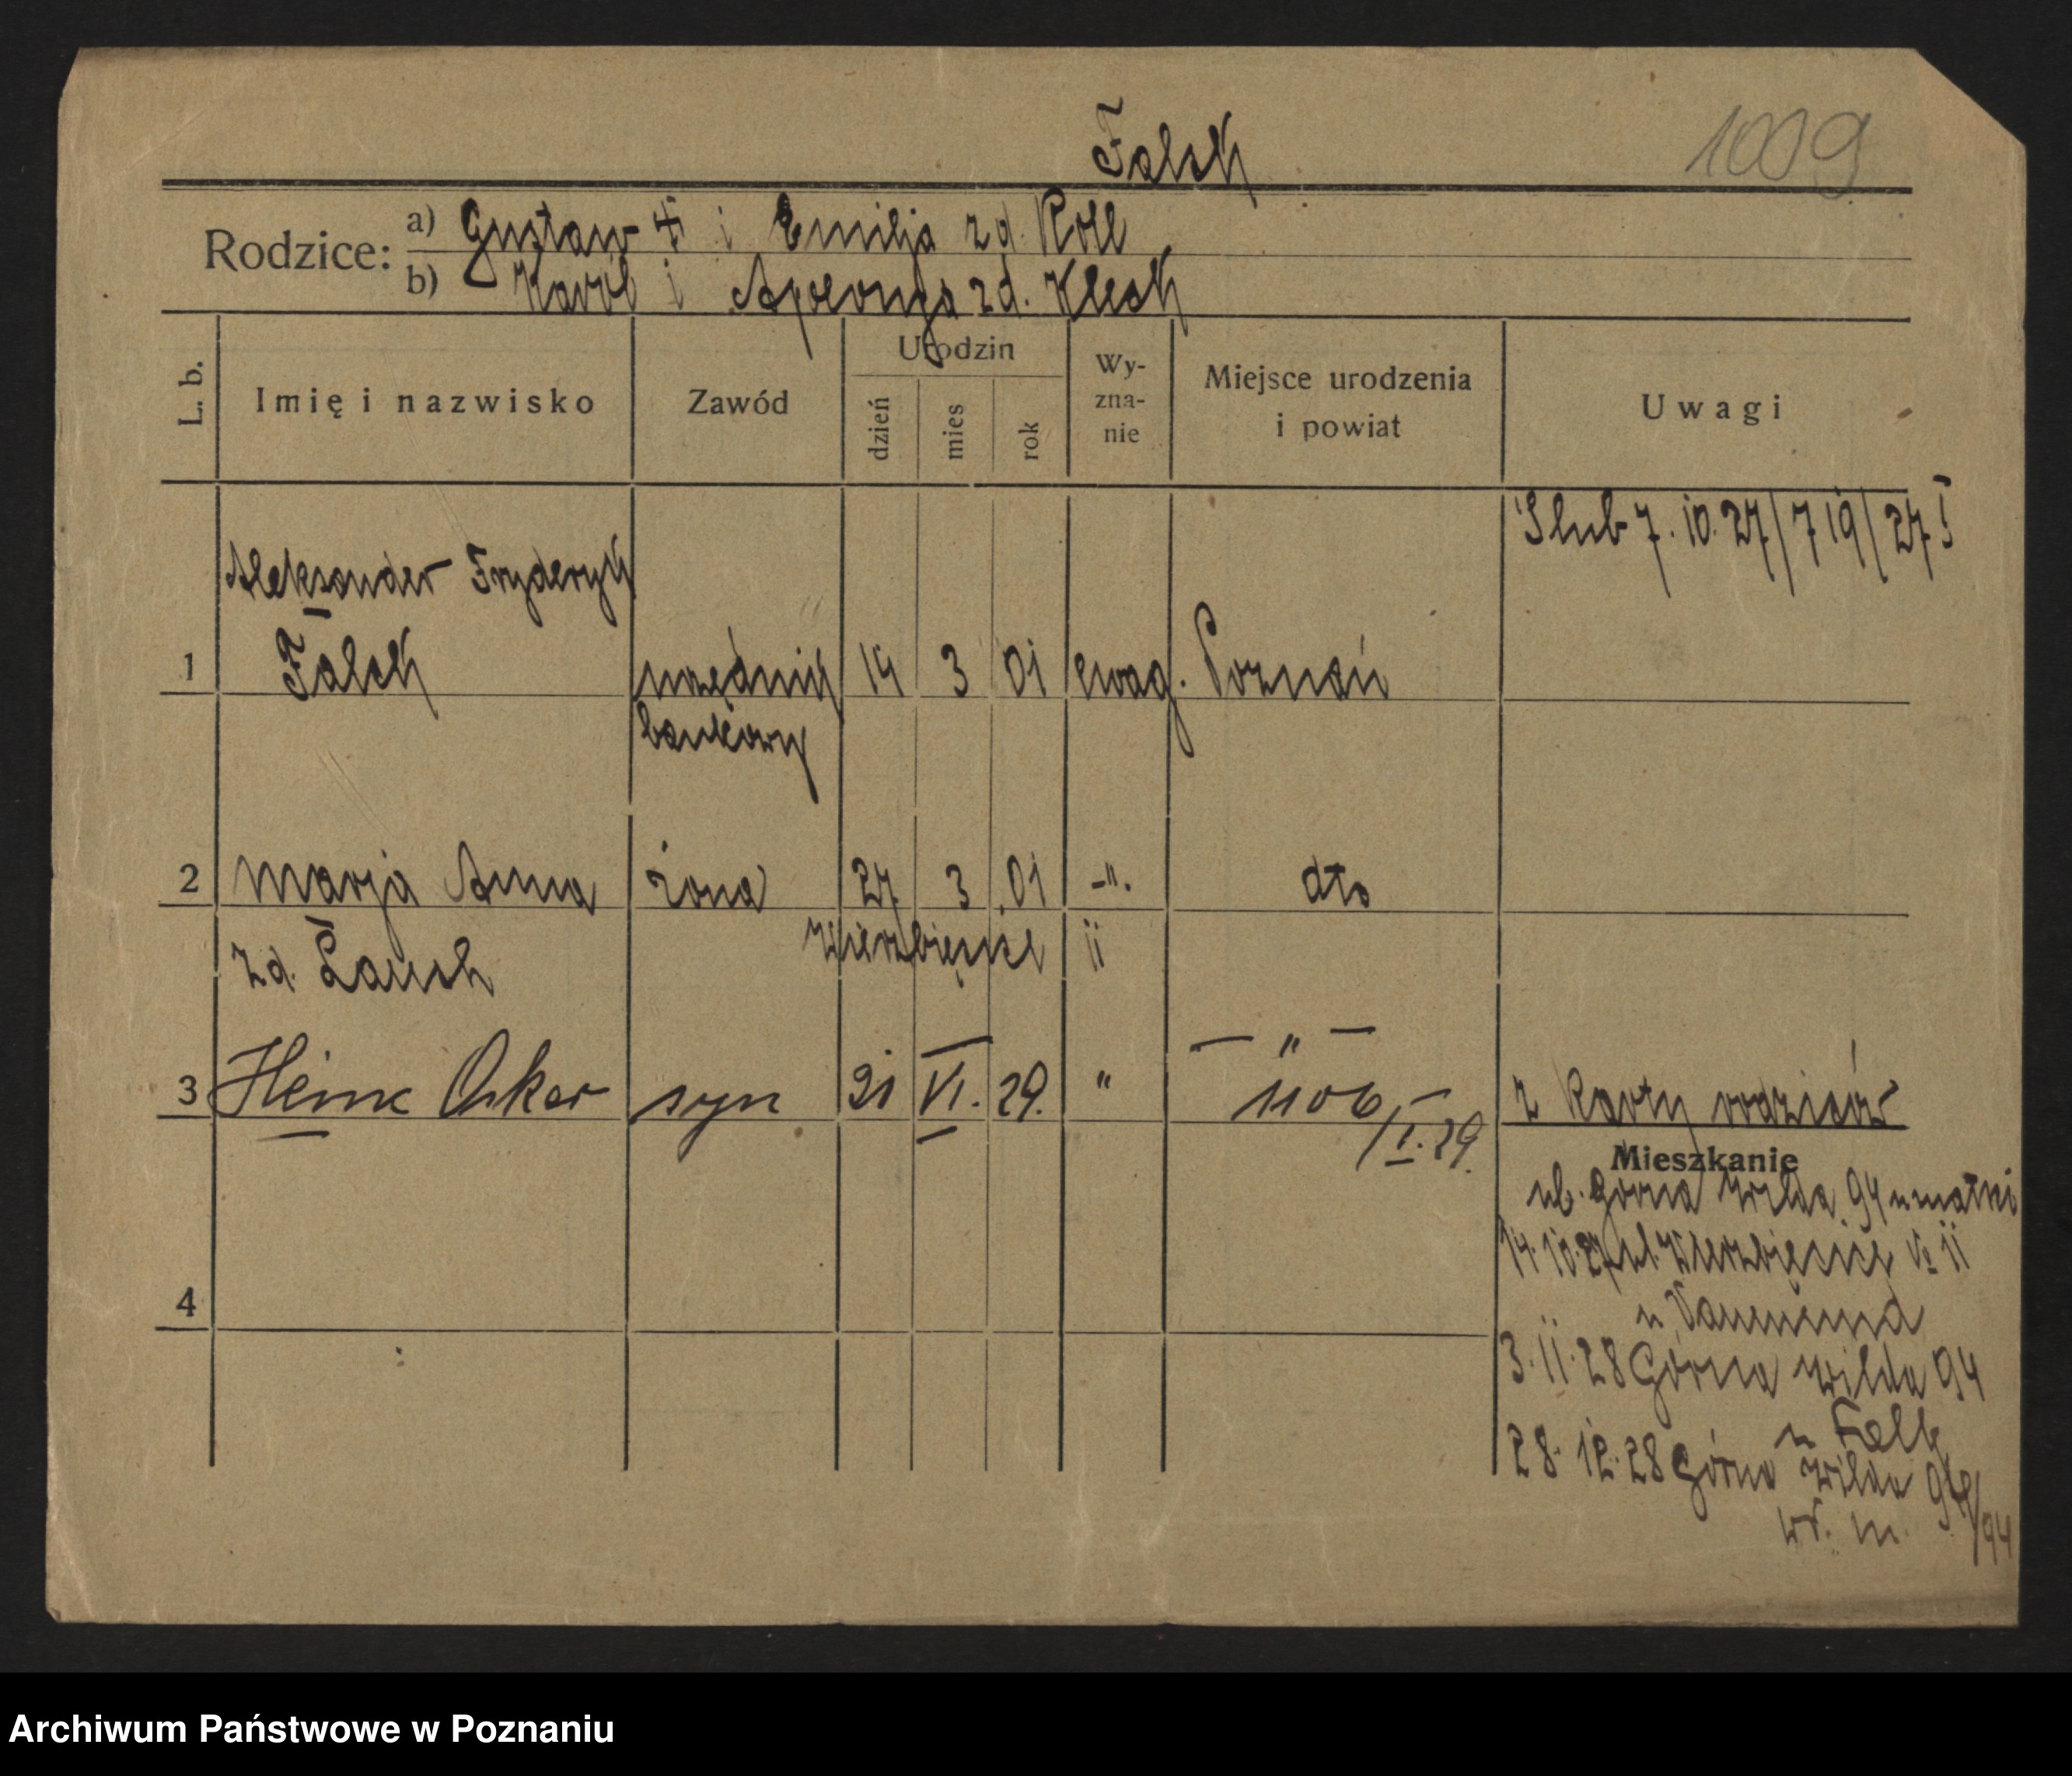 Falck
1009
Rodzice: a) Gustaw i Emilja zd. Roll
b) Karol i Apolonja zd. Kleck
L. b.
Imię i nazwisko
Zawód
Urodzin
dzień
mies
rok
Wy-
zna-
nie
Miejsce urodzenia
i powiat
Uwagi
Ślub 7.10.27/719/27 I
Aleksander Fryderyk
1 Falck urzędnik 14 3 01 ewag. Poznań
bankowy
2 Marja Anna żona 27 3 01 -"- dto
zd. Lauch Wierzbięcice 11
— " —
3 Heinz Oskar syn 21 VI. 29. " 1106
/I. 29.
z karty rodziców
Mieszkanie
ul. Górna Wilda 94 u matki
14.10.27 ul. Wierzbięcice № 11
u
3.11.28 Górna Wilda 94
u Falk
28.12.28 Górna Wilda
wł. m. /94
4
Archiwum Państwowe w Poznaniu